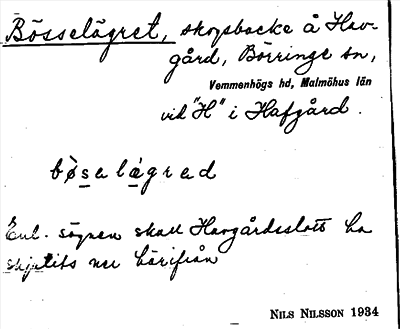 Bösselägret, skogsbacke å Hav-
gård, Börringe sn,
Vemmenhögs hd, Malmöhus län
vid "H" i Hafgård.
bø̀salágrad
Enl. sägnen skall Havgårdsslott ha
skjutits ner härifrån
NILS NILSSON 1934